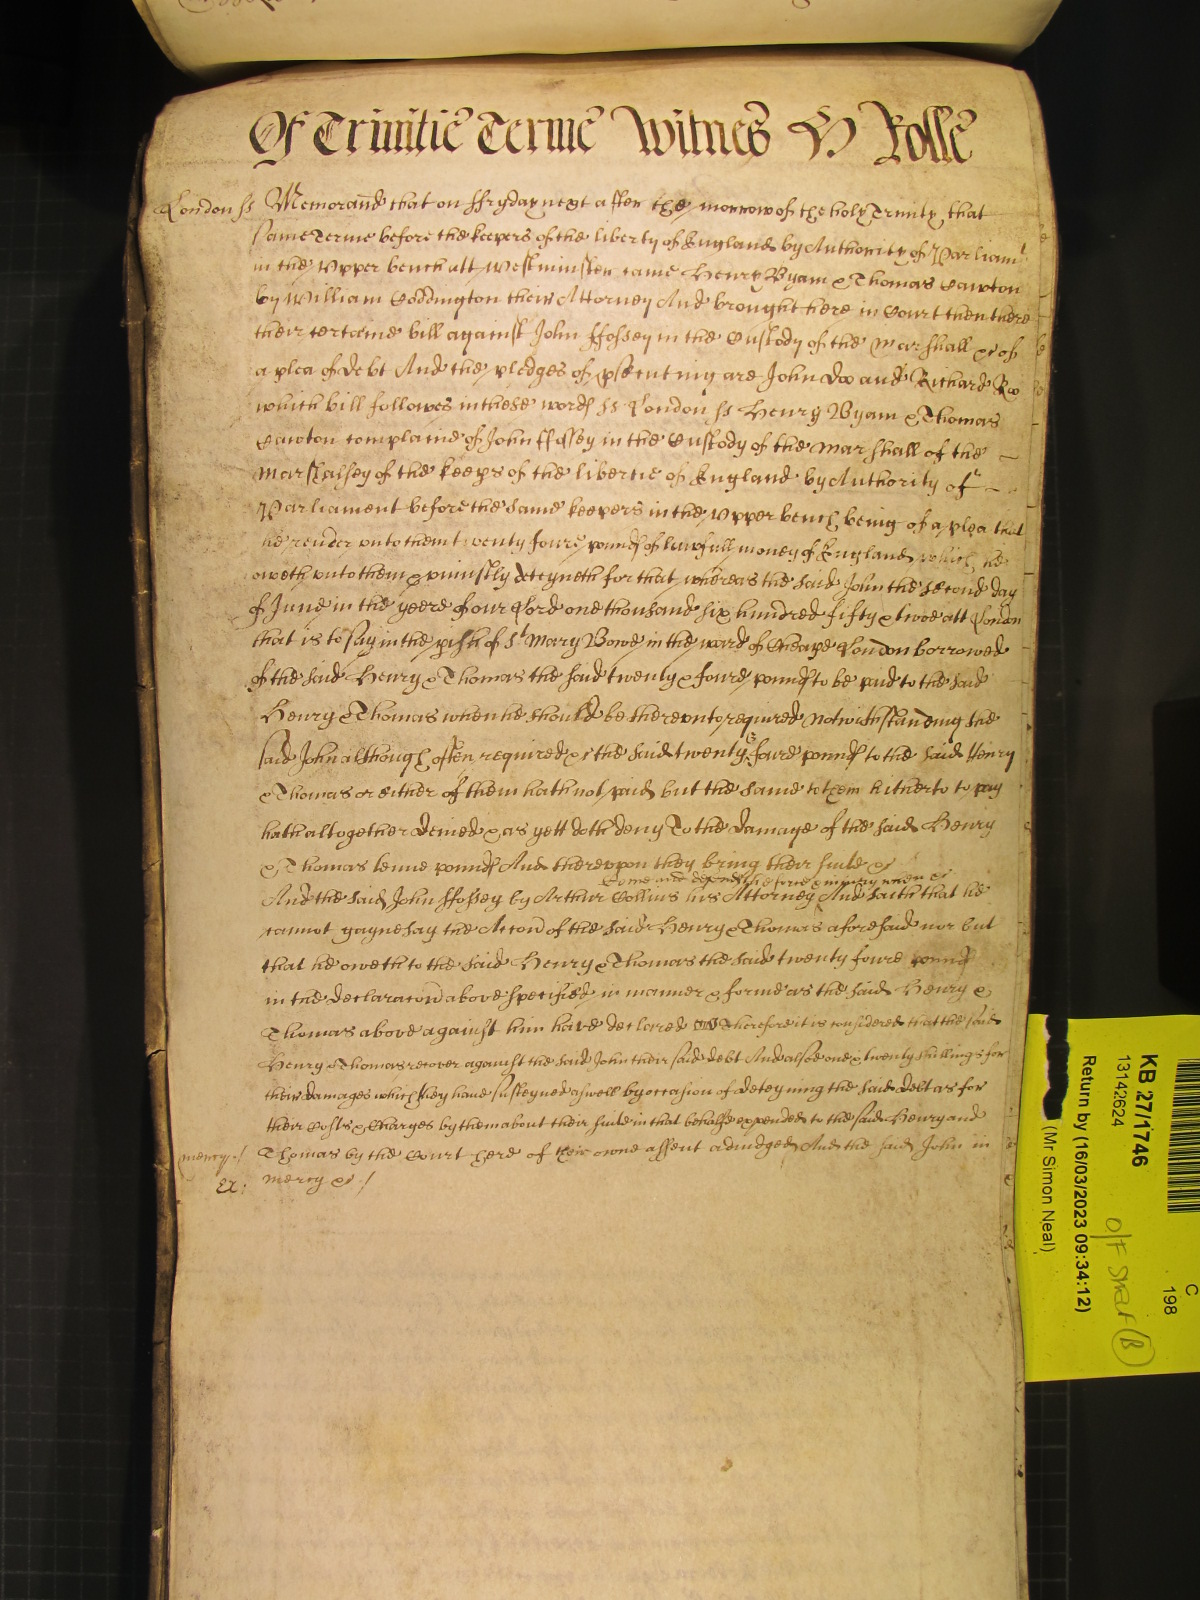 Of Trinitie Terme Witnes H Rolle
London ss Memorand that on ffryday next after the morrow of the holy Trinity that
same Terme before the keepers of the liberty of England by Authority of Parliamt
in the Upper bench att Westminster came Henry Byam & Thomas Cawton
by William Coddington their Attorney And brought here in Court then there
their certaine bill against John ffossey in the Custody of the Marshall &c of
a plea of debt And the pledges of psecuting are John Doo and Richard Roo
which bill followes in these words ss London ss Henry Byam & Thomas
Cawton complaine of John ffossey in the Custody of the Marshall of the
Marshalsey of the keeps of the libertie of England by Authority of
Parliament before the same keepers in the Upper bench being of a plea that
he render unto them twenty foure pounds of lawfull money of England which he
oweth unto them & uniustly deteyneth for that whereas the said John the second day
of June in the yeere of our Lord one thousand six hundred fifty & twoe att London
that is to say in the pish of St Mary Bowe in the ward of Cheape London borrowed
of the said Henry & Thomas the said twenty & foure pounds to be paid to the said
Henry & Thomas when he should be thereunto required Notwithstanding the
said John although often required &c the said twenty & foure pounds to the said Henry
& Thomas or either of them hath not paid but the same to them hitherto to pay
hath altogether denied & as yett doth deny To the damage of the said Henry
& Thomas tenne pounds And thereupon they bring their suite &c
Come and defends the force & iniury when &c
And the said John ffossey by Arthur Collins his Attorney And saith that he
cannot gaynesay the Accon of the said Henry & Thomas aforesaid nor but
that he oweth to the said Henry & Thomas the said twenty foure pounds
in the declaracon above specified in manner & forme as the said Henry &
Thomas above against him have declared Therefore it is considered that the said
Henry & Thomas recover against the said John their said debt And alsoe one & twenty shillings for
their damages which they have susteyned aswell by occasion of deteyning the said debt as for
their Costs & Charges by them about their suite in that behalfe expended to the said Henry and
Thomas by the Court here of their owne assent adiudged And the said John in
mercy &c /
mercy /
Ex:
KB 27/1746
13142624
Return by (16/03/2023 09:34:12)
(Mr Simon Neal)
C
198
O/F Shelf (B)